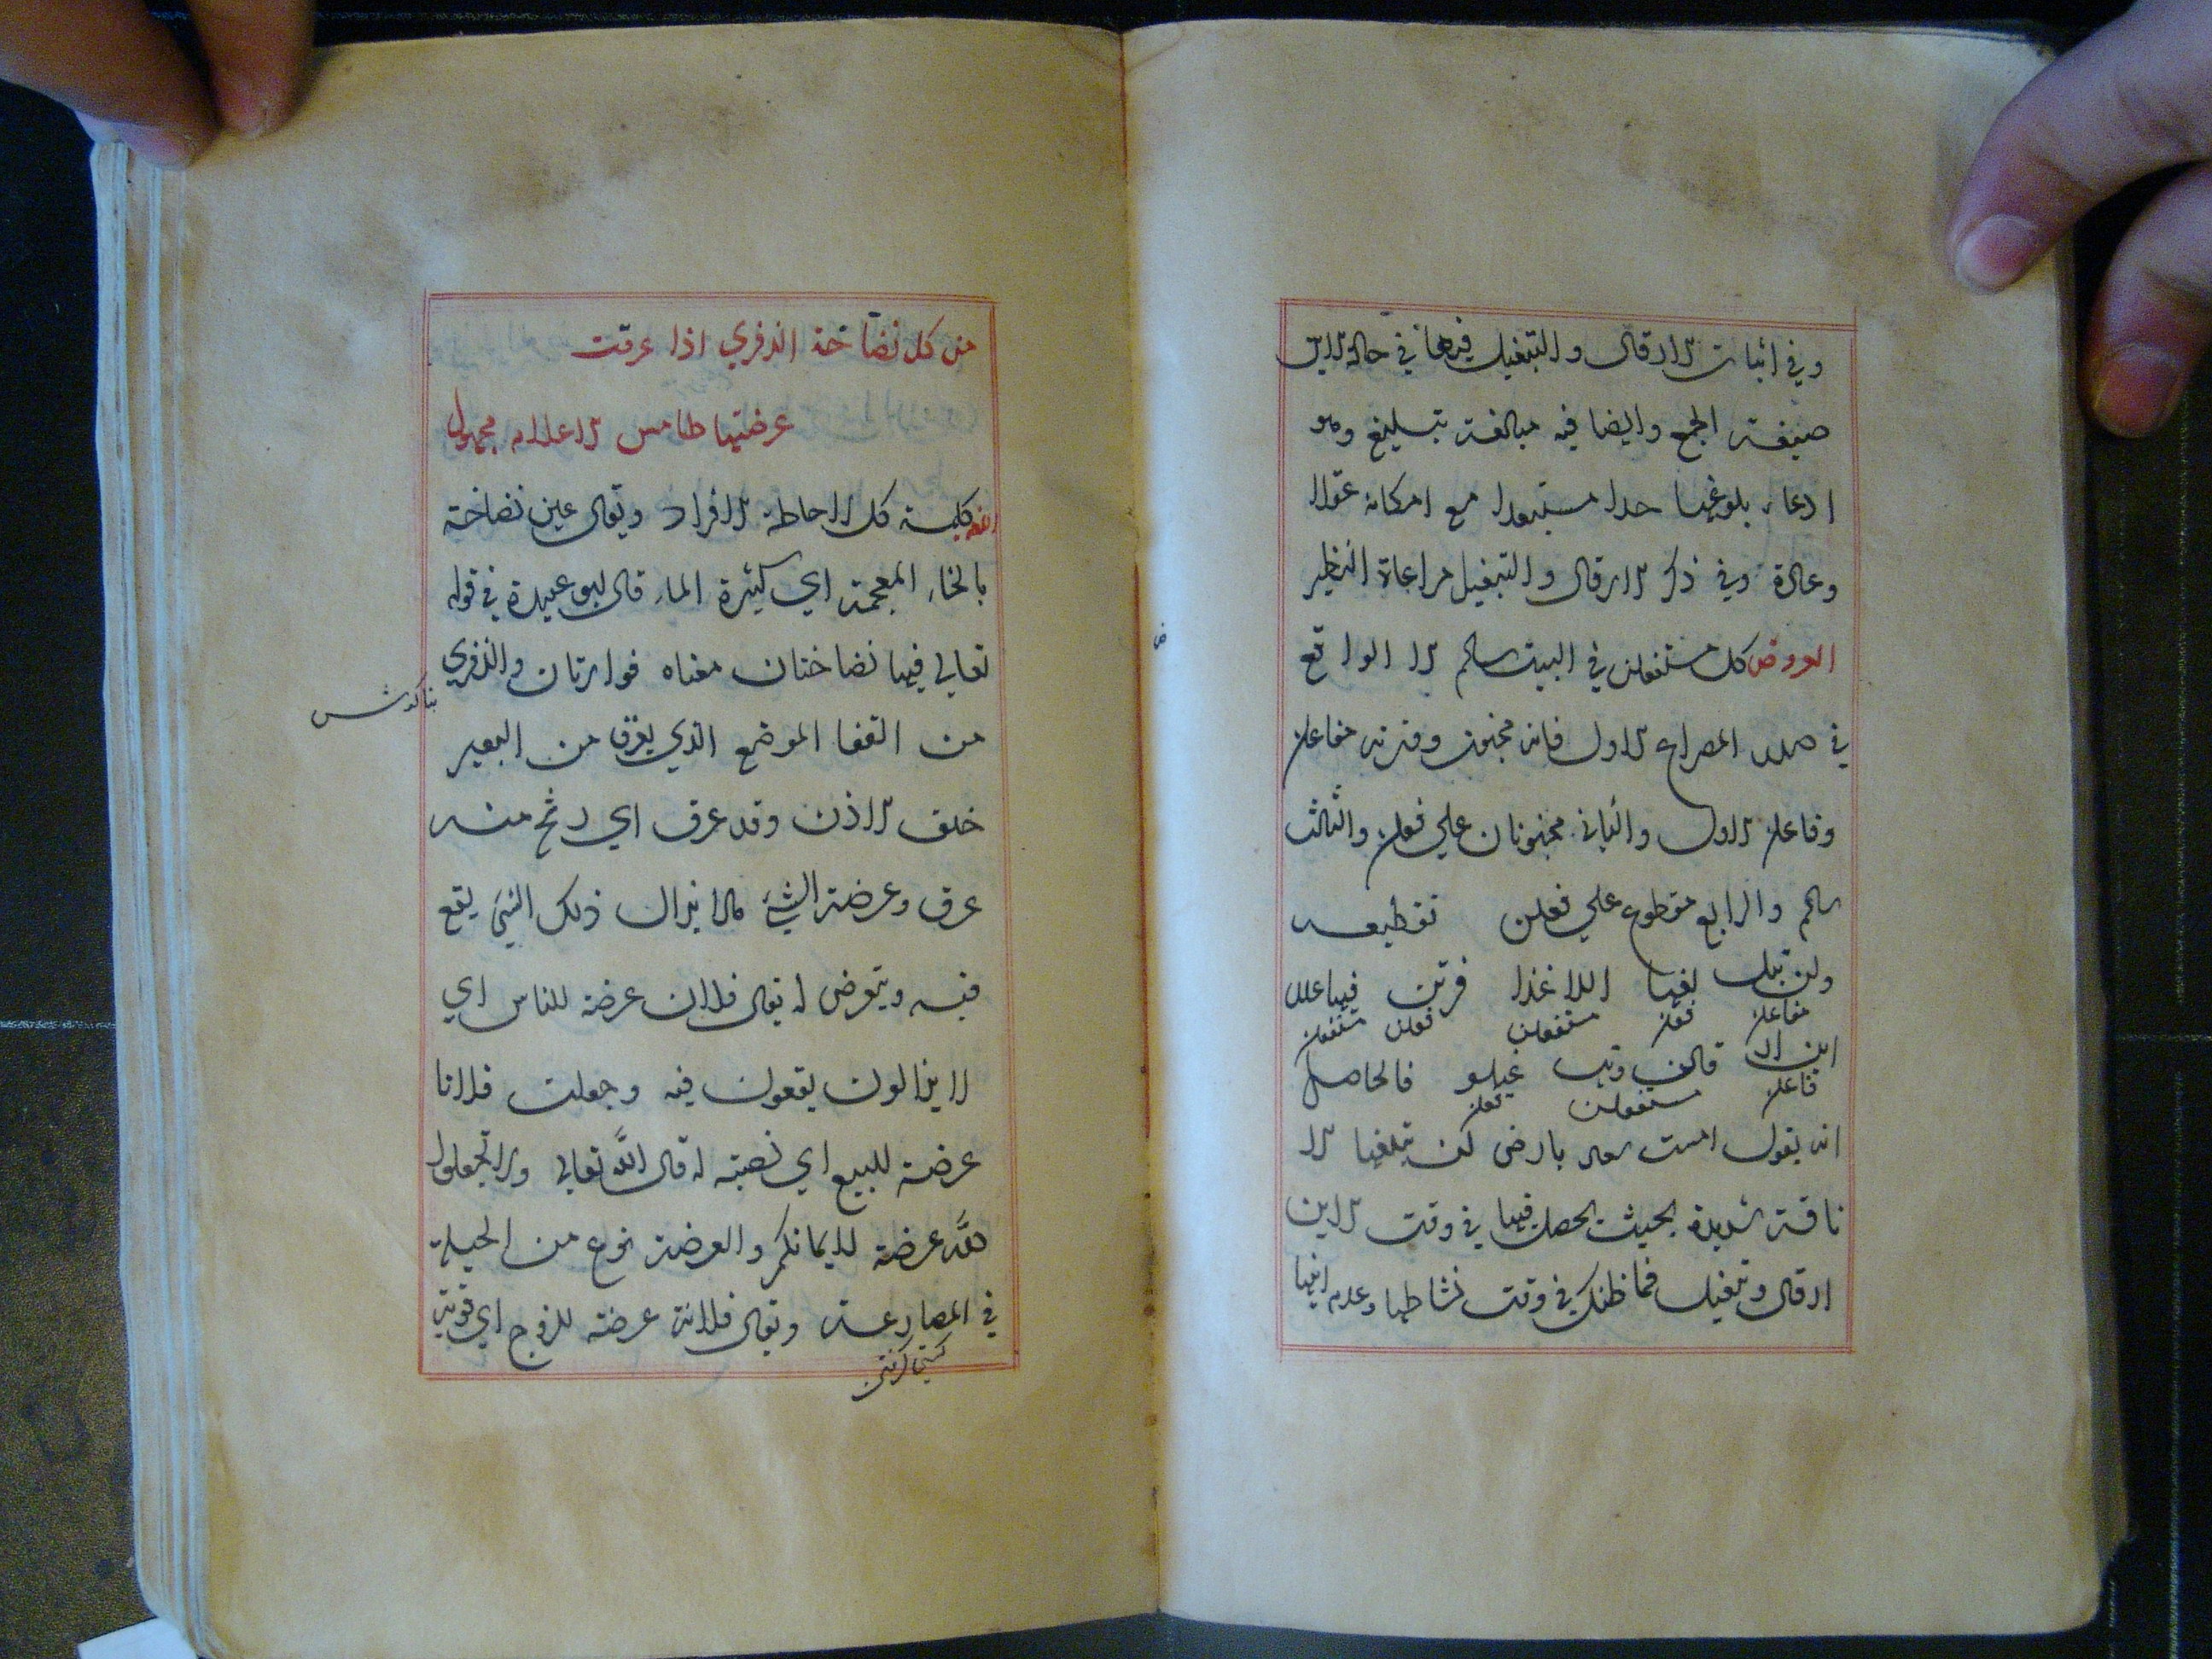 وفي اثبات الارقال والتبغيل فيها في حالة الاين
صيغة الجمع وايضا فيه مبالغة تبليغ وهو
ادعاء بلوغها حدا مستبعدا مع امكانه عقلا
وعادة وفي ذكر الارقال والتبغيل مراعاة النظير
العروض كل مستفعلن في البيت سالم الا الواقع
في صدر المصراع الاول فانه مخبون وزنه مفاعلن
وفاعلن الاول والثاني مخبونان علي فعلن والثالث
سالم والرابع مقطوع علي فعلن تقطيعه
ولن تبل لغها اللا غذا فرتن فيها علل
مفاعلن فعلن مستفعلن فعلن مستفعلن
اين ار قالن وتب غيلو فالحاصل
فاعلن مستفعلن فعلن
انه يقول امست سعاد بارض لن يبلغها الا
ناقة شديدة بحيث يحصل فيها في وقت الاين
ارقال وتبغيل فما ظنك في وقت نشاطها وعدم اينها
من كل نضاخة الذفري اذا عرقت
عرضتها طامس الاعلام مجهول
اللغة كلمة كل لاحاطة الافراد ويقال عين نضاخة
بالخاء المعجمة اي كثيرة الماء قال ابو عبيدة في قوله
تعالي فيها نضاختان معناه فوارتان والذفري
بنا كوش
من القفا الموضع الذي يعرق من البعير
خلف الاذن وقد عرق اي رشح منه
عرق وعرضة الشيء مالا يزال ذلك الشيء يقع
فيه ويتعرض له يقال فلان عرضة للناس اي
لا يزالون يقعون فيه وجعلت فلانا
عرضة للبيع اي نصبته له قال الله تعالي ولا تجعلوا
الله عرضة لايمانكم والعرضة نوع من الحيلة
في المصارعة ويقال فلانة عرضة للزوج اي قوية
كشتي كرفتن